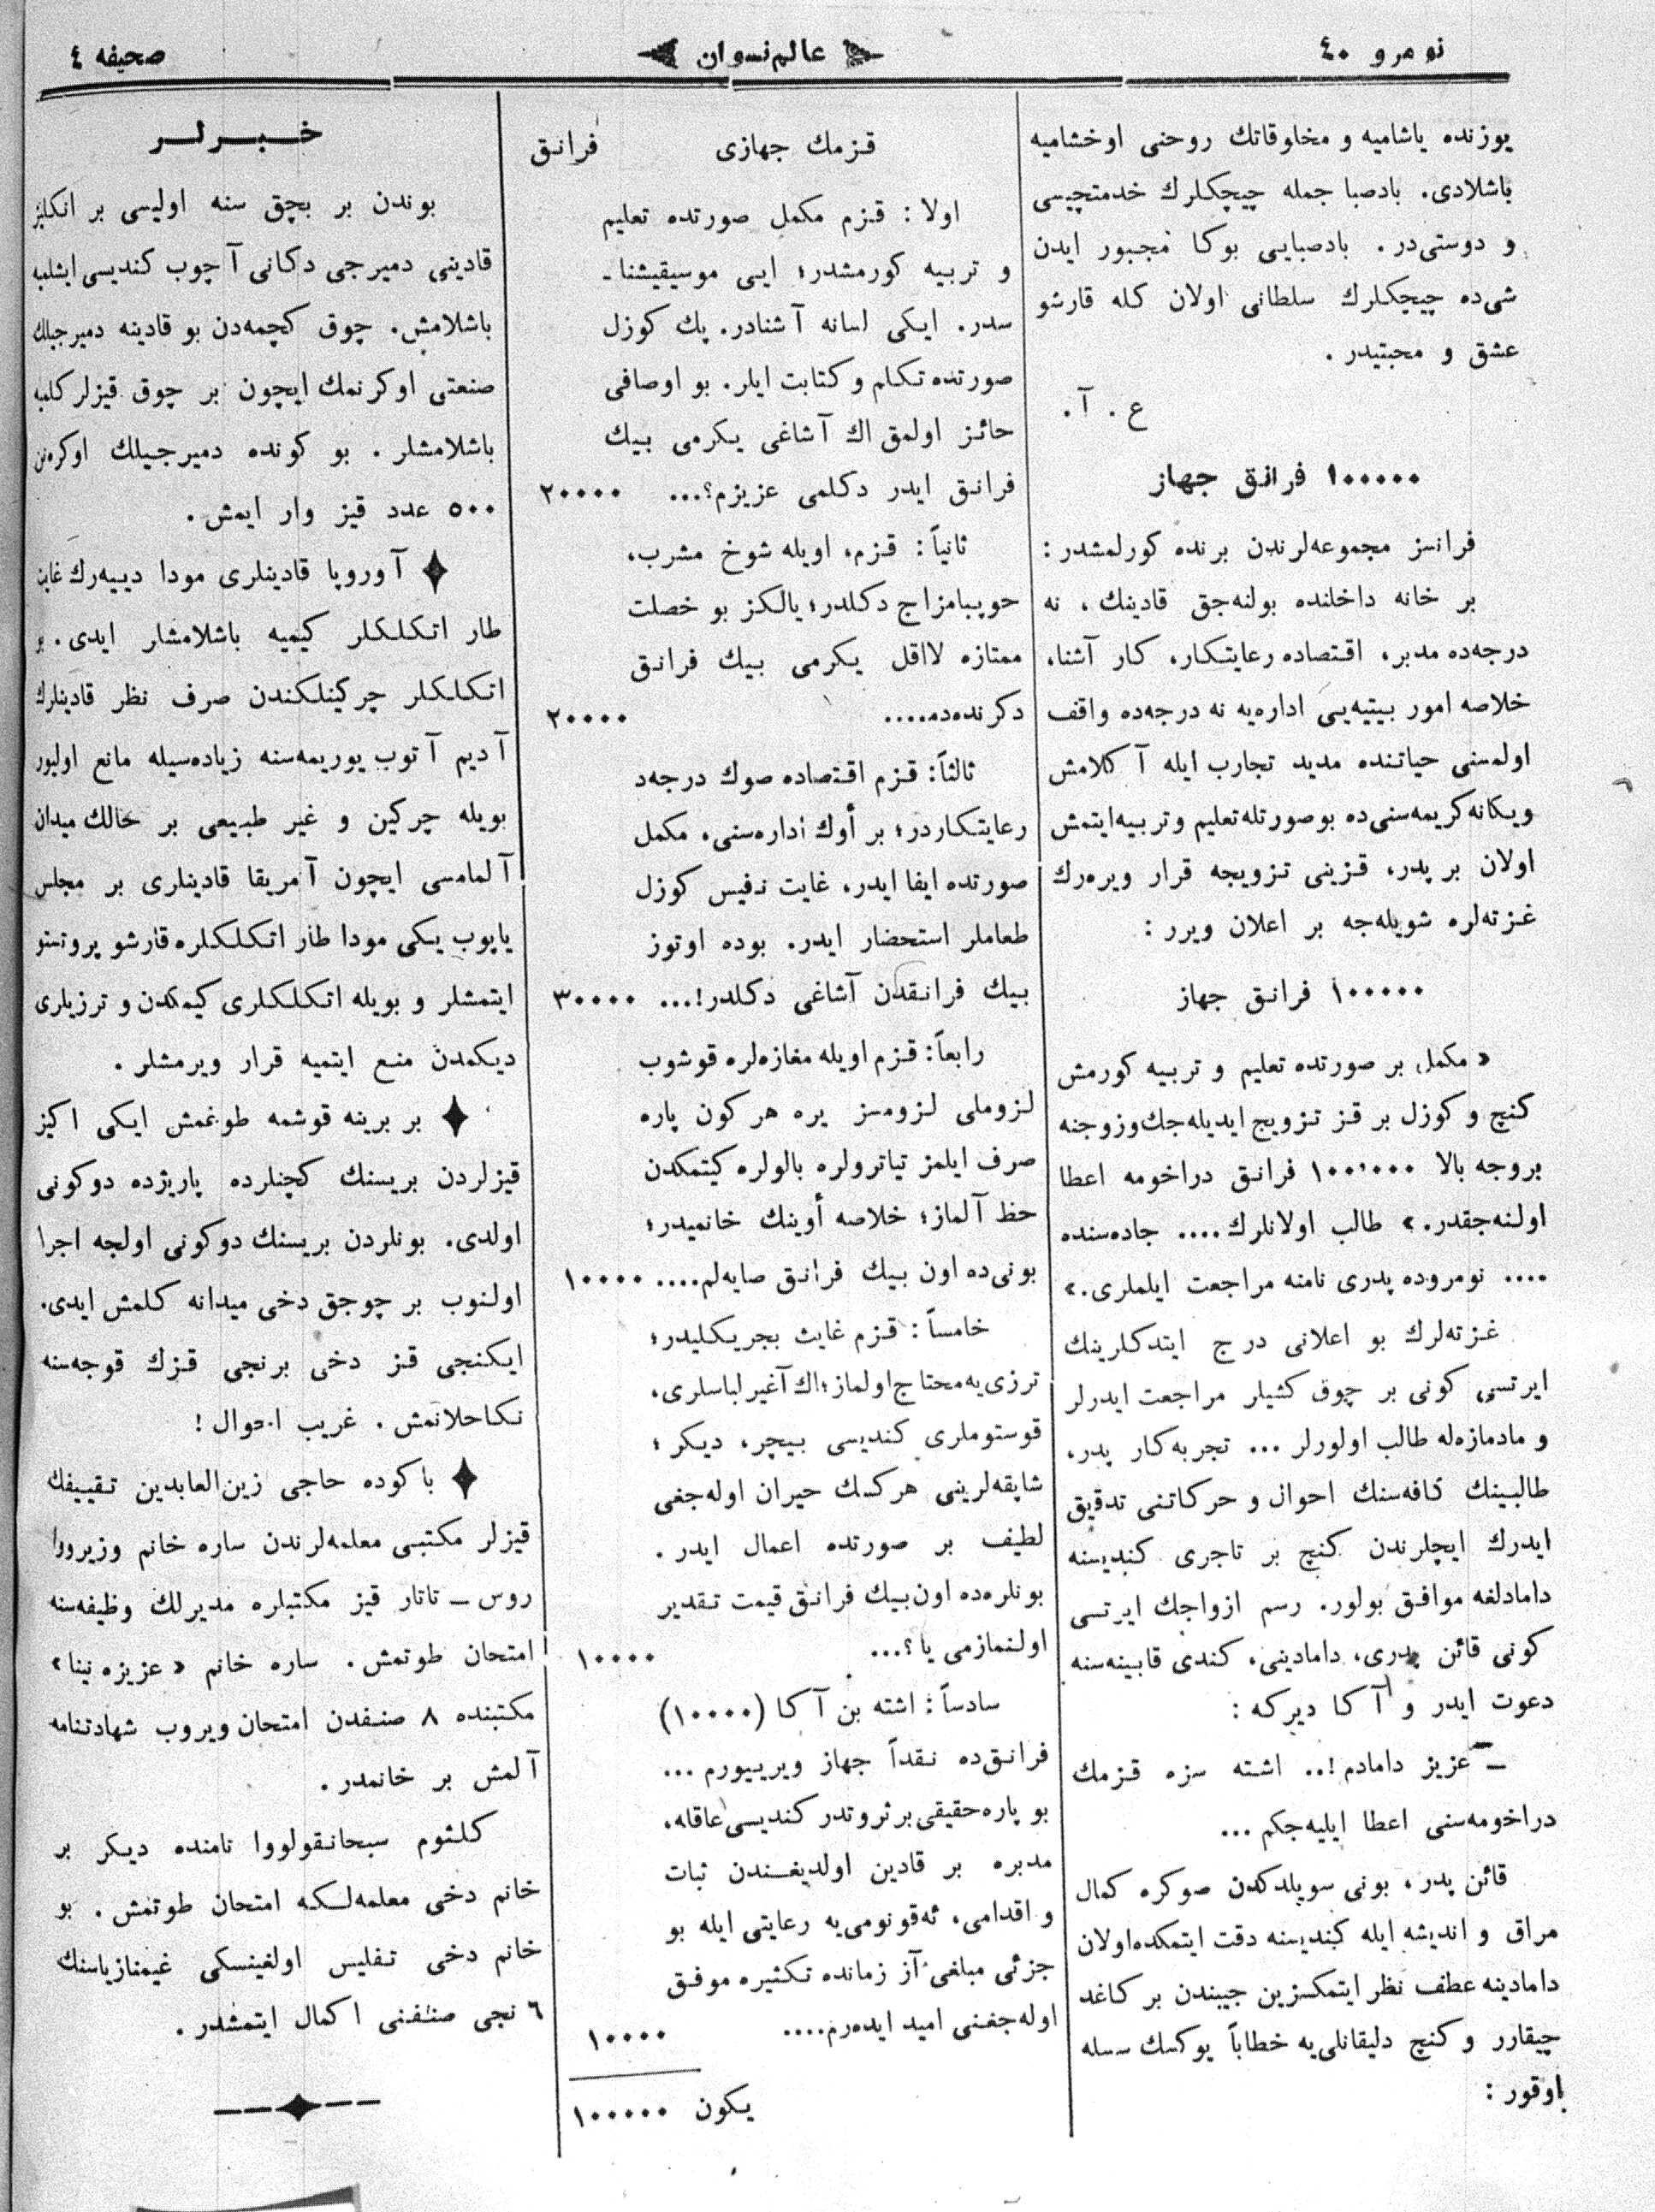 نومرو ٤٠
عالم نسوان
صحیفه ٤
یوزنده یاشامیه و مخلوقاتك روحنی اوخشامیه
باشلادی. بادصبا جمله چیچكلرك خدمتچیسی
و دوستی‌در. بادصبایی بوكا مجبور ایدن
شی‌ده چیچكلرك سلطانی اولان كله قارشو
عشق و محبتیدر.
ع. آ.
١٠٠٠٠٠ فرانق جهاز
فرانسز مجموعه‌لرندن برنده كورلمشدر:
بر خانه داخلنده بولنه‌جق قادینك، نه
درجه‌ده مدبر، اقتصاده رعایتكار، كار آشنا،
خلاصه امور بیتیه‌یی اداره‌یه نه درجه‌ده واقف
اولمسنی حیاتنده مدید تجارب ایله آكلامش
ویكانه كریمه‌سنی‌ده بو صورتله تعلیم و تربیه ایتمش
اولان بر پدر، قزینی تزویجه قرار ویره‌رك
غزته‌لره شویله‌جه بر اعلان ویرر:
١٠٠٠٠٠ فرانق جهاز
« مكمل بر صورتده تعلیم و تربیه كورمش
كنج و كوزل بر قز تزویج ایدیله‌جك و زوجنه
بروجه بالا ١٠٠٬٠٠٠ فرانق دراخومه اعطا
اولنه‌جقدر.» طالب اولانلرك.... جاده‌سنده
.... نومروده پدری نامنه مراجعت ایلملری.»
غزته‌لرك بو اعلانی درج ایتدكلرینك
ایرتسی كونی بر چوق كشیلر مراجعت ایدرلر
و مادمازه‌له طالب اولورلر ... تجربه‌كار پدر،
طالبینك كافه‌سنك احوال و حركاتنی تدقیق
ایدرك ایچلرندن كنج بر تاجری كندیسنه
دامادلغه موافق بولور. رسم ازواجك ایرتسی
كونی قائن پدری، دامادینی، كندی قابینه‌سنه
دعوت ایدر و آكا دیركه:
— عزیز دامادم!.. اشته سزه قزمك
دراخومه‌سنی اعطا ایلیه‌جكم ...
قائن پدر، بونی سویلدكدن صوكره كمال
مراق و اندیشه ایله كندیسنه دقت ایتمكده اولان
دامادینه عطف نظر ایتمكسزین جیبندن بر كاغد
چیقارر و كنج دلیقانلی‌یه خطاباً یوكسك سسله
اوقور:
قزمك جهازی فرانق
اولا: قزم مكمل صورتده تعلیم
و تربیه كورمشدر؛ ایی موسیقیشنا-
سدر. ایكی لسانه آشنادر. پك كوزل
صورتده تكلم و كتابت ایلر. بو اوصافی
حائز اولمق اك آشاغی یكرمی بیك
فرانق ایدر دكلمی عزیزم؟... ٢٠٠٠٠
ثانیاً: قزم، اویله شوخ مشرب،
حوپبامزاج دكلدر؛ یالكز بو خصلت
ممتازه لااقل یكرمی بیك فرانق
دكرنده‌در.... ٢٠٠٠٠
ثالثاً: قزم اقتصاده صوك درجه‌د
رعایتكاردر؛ بر أوك اداره‌سنی، مكمل
صورتده ایفا ایدر، غایت نفیس كوزل
طعاملر استحضار ایدر. بوده اوتوز
بیك فرانقدن آشاغی دكلدر!... ٣٠٠٠٠
رابعاً: قزم اویله مغازه‌لره قوشوب
لزوملی لزومسز یره هر كون پاره
صرف ایلمز تیاترولره بالولره كیتمكدن
حظ آلماز؛ خلاصه أوینك خانمیدر؛
بونی‌ده اون بیك فرانق صایه‌لم.... ١٠٠٠٠
خامساً: قزم غایت بجریكلیدر؛
ترزی‌یه محتاج اولماز؛ اك آغیر لباسلری،
قوستوملری كندیسی بیچر، دیكر؛
شاپقه‌لرینی هركسك حیران اوله‌جغی
لطیف بر صورتده اعمال ایدر.
بونلره‌ده اون بیك فرانق قیمت تقدیر
اولنمازمی یا؟... ١٠٠٠٠
سادساً: اشته بن آكا (١٠٠٠٠)
فرانق‌ده نقداً جهاز ویرییورم ...
بو پاره حقیقی بر ثروتدر كندیسی عاقله،
مدبره بر قادین اولدیغندن ثبات
و اقدامی، ئه‌قونومی‌یه رعایتی ایله بو
جزئی مبلغی آز زمانده تكثیره موفق
اوله‌جغنی امید ایده‌رم.... ١٠٠٠٠
یكون ١٠٠٠٠٠
خبرلر
بوندن بر بچق سنه اولیسی بر انكلیز
قادینی دمیرجی دكانی آچوب كندیسی ایشلمیه
باشلامش. چوق كچمه‌دن بو قادینه دمیرجیلك
صنعتی اوكرنمك ایچون بر چوق قیزلر كلمیه
باشلامشلر. بو كونده دمیرجیلك اوكره‌نن
٥٠٠ عدد قیز وار ایمش.
آوروپا قادینلری مودا دییه‌رك غایت
طار اتكلكلر كیمیه باشلامشلر ایدی. بو
اتكلكلر چركینلكندن صرف نظر قادینلرك
آدیم آتوب یوریمه‌سنه زیاده‌سیله مانع اولیور
بویله چركین و غیر طبیعی بر حالك میدان
آلمامسی ایچون آمریقا قادینلری بر مجلس
یاپوب یكی مودا طار اتكلكلره قارشو پروتستو
ایتمشلر و بویله اتكلكلری كیمكدن و ترزیلری
دیكمدن منع ایتمیه قرار ویرمشلر.
بر برینه قوشمه طوغمش ایكی اكیز
قیزلردن بریسنك كچنلرده پاریژده دوكونی
اولدی. بونلردن بریسنك دوكونی اولجه اجرا
اولنوب بر چوجق دخی میدانه كلمش ایدی.
ایكنجی قز دخی برنجی قزك قوجه‌سنه
نكاحلانمش. غریب احوال!
باكوده حاجی زین‌العابدین تقییفك
قیزلر مكتبی معلمه‌لرندن ساره خانم وزیرووا
روس — تاتار قیز مكتبلره مدیرلك وظیفه‌سنه
امتحان طوتمش. ساره خانم « عزیزه نینا»
مكتبنده ٨ صنفدن امتحان ویروب شهادتنامه
آلمش بر خانمدر.
كلثوم سبحانقولووا نامنده دیكر بر
خانم دخی معلمه‌لكه امتحان طوتمش. بو
خانم دخی تفلیس اولغینسكی غیمنازیاسنك
٦ نجی صنفنی اكمال ایتمشدر.